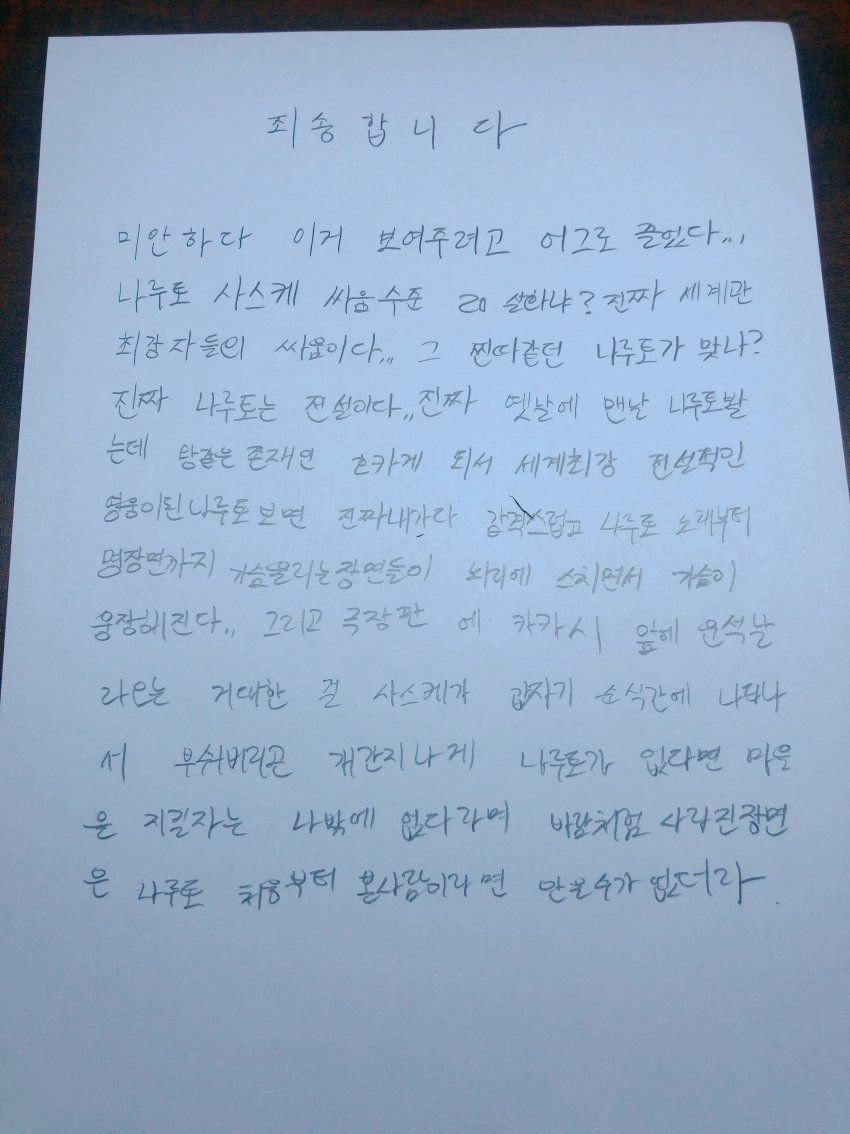 죄송합니다
미안하다 이거 보여주려고 어그로 끌었다...
나루토 사스케 싸움수준 ㄹㅇ 실화냐? 진짜 세계관
최강자들의 싸움이다... 그 찐따같던 나루토가 맞나?
진짜 나루토는 전설이다.. 진짜 옛날에 맨날 나루토봘
는데 왕같은 존재인 호카게 되서 세계최강 전설적인
영웅이된 나루토보면 진짜내가다 감격스럽고 나루토 노래부터
명장면까지 가슴울리는장면들이 뇌리에 스치면서 가슴이
웅장해진다.. 그리고 극장판 에 카카시 앞에 운석날
라오는 거대한 걸 사스케가 갑자기 순식간에 나타나
서 부숴버리곤 개간지나게 나루토가 없다면 마을
은 지킬자는 나밖에 없다라며 바람처럼 사라진장면
은 나루토 처음부터 본사람이라면 안울수가 없더라